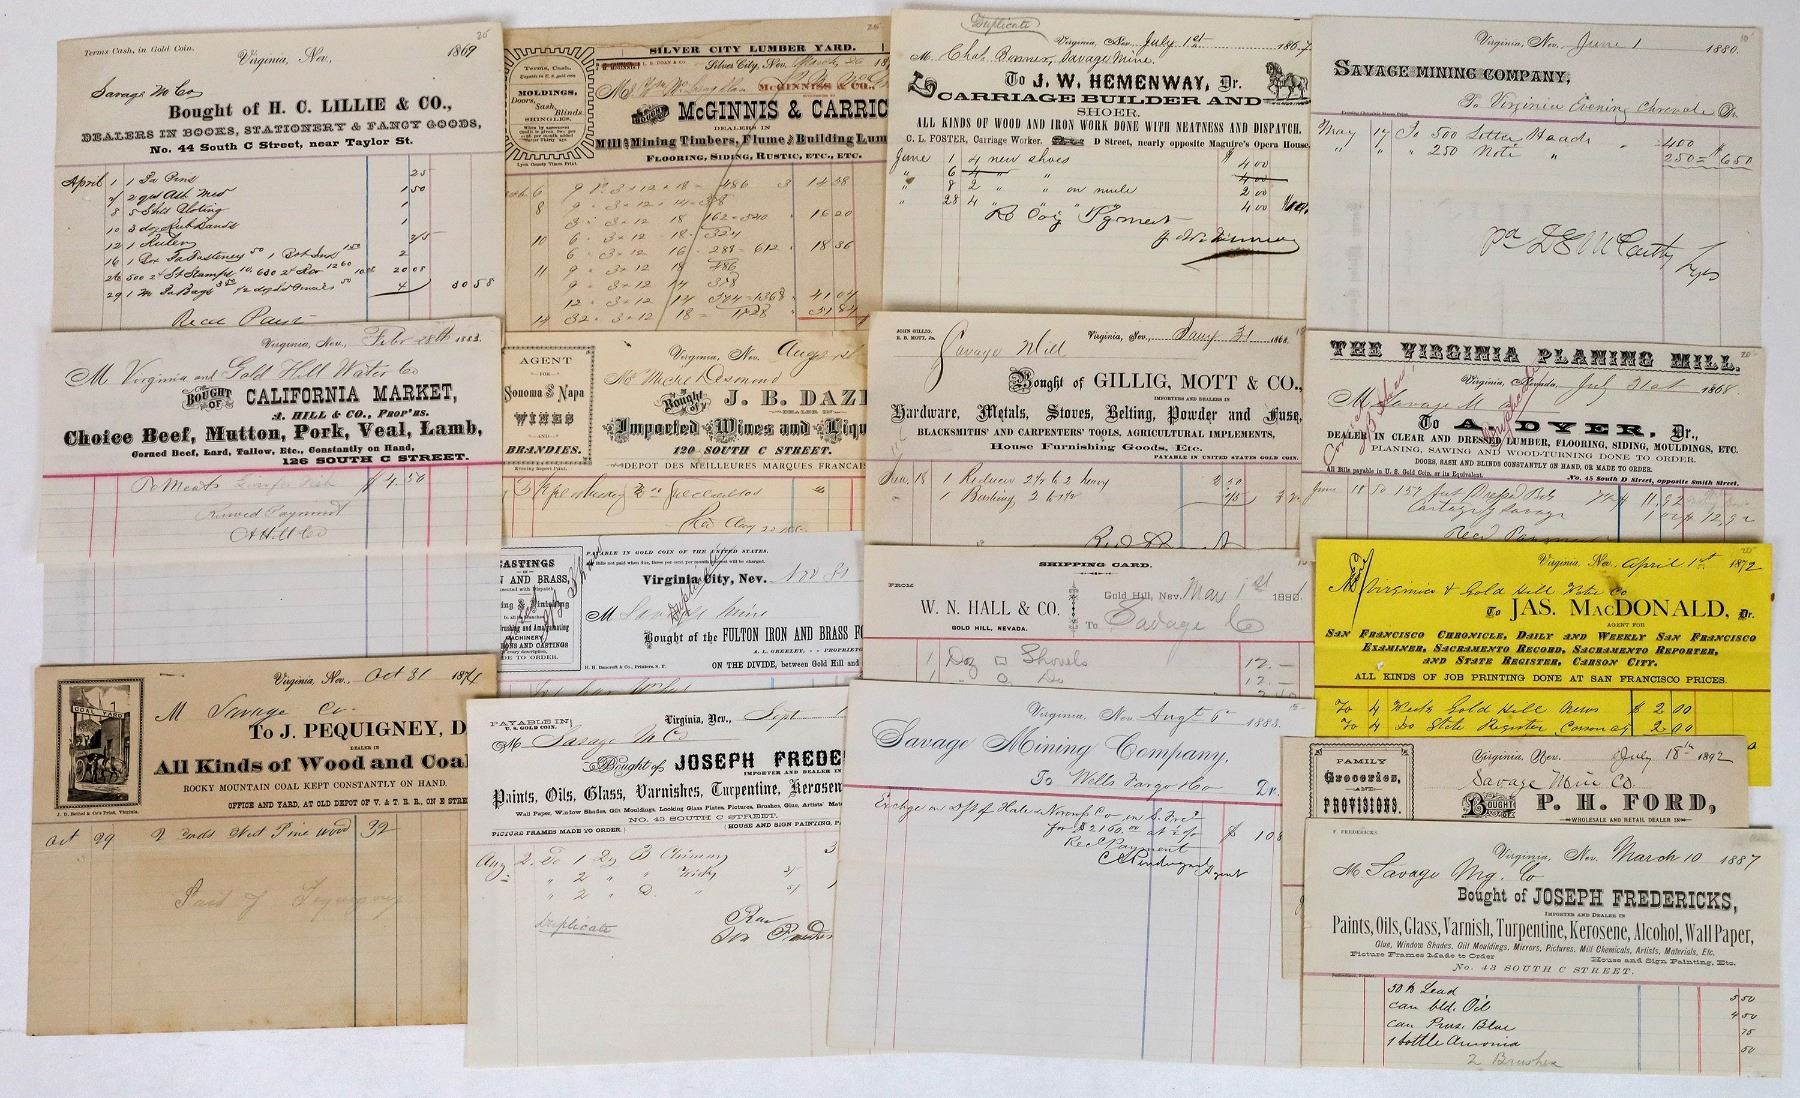 Terms Cash, in Gold Coin.
Virginia, Nev., 1869
Savage M Co
Bought of H. C. LILLIE & CO.,
DEALERS IN BOOKS, STATIONERY & FANCY GOODS,
No. 44 South C Street, near Taylor St.
April 1 1 Pa Pens 25
1 50
10 3 doz Rub Bands 1
12 1 Ruler
20 08
4 30 58
Recd Paymt
SILVER CITY LUMBER YARD.
Terms, Cash,
Payable in U. S. gold coin
MOLDINGS,
Doors, Sash, Blinds
SHINGLES,
Lyon County Times Print.
Silver City, Nev. March 26 18
McGINNISS & CO.,
McGINNIS & CARRIC
DEALERS IN
Mill and Mining Timbers, Flume and Building Lum
FLOORING, SIDING, RUSTIC, ETC., ETC.
6 9 Ps 3 x 12 x 18 = 486 3 14 58
8 9 3 x 12 x 14 = 378
3 3 x 12 18 162 = 540 16 20
10 6 3 x 12 18 324
6 3 x 12 16 288 = 612 18 36
11 9 3 x 12 18 486
9 3 x 12 14 378
12 3 x 12 14 504 = 1368 41 04
14 32 3 x 12 18 = 1728 51 84
Duplicate
Virginia, Nev., July 1st 1867
M Chas. Bonner, Savage Mine.
To J. W. HEMENWAY, Dr.
CARRIAGE BUILDER AND
SHOER.
ALL KINDS OF WOOD AND IRON WORK DONE WITH NEATNESS AND DISPATCH.
C. L. FOSTER, Carriage Worker. D Street, nearly opposite Maguire's Opera House.
June 1 4 new shoes $ 4 00
" 6 4 " " 4 00
" 8 2 " " on mule 2 00
" 28 4 " " " " 4 00
Virginia, Nev., June 1 1880.
SAVAGE MINING COMPANY,
To Virginia Evening Chronicle Dr.
May 17 To 500 Letter Heads 400
" " " 250 Note " 250 = $ 650
Pd D E McCarthy
Virginia, Nev., Febr 28th 1883.
M Virginia and Gold Hill Water Co
BOUGHT OF CALIFORNIA MARKET,
A. HILL & CO., PROP'RS.
Choice Beef, Mutton, Pork, Veal, Lamb,
Corned Beef, Lard, Tallow, Etc., Constantly on Hand,
126 SOUTH C STREET.
To Meats $ 4.50
Received Payment
A Hill Co
AGENT
FOR
Sonoma and Napa
WINES
AND
BRANDIES.
Virginia, Nev. Aug 1st
Mr Michl Desmond
Bought of J. B. DAZE
DEALER IN
Imported Wines and Liqu
120 SOUTH C STREET
DEPOT DES MEILLEURES MARQUES FRANCAIS
JOHN GILLIG.
H. B. MOTT, Jr.
Virginia, Nev., Jany 31 1868
Savage Mill
Bought of GILLIG, MOTT & CO.,
IMPORTERS AND DEALERS IN
Hardware, Metals, Stoves, Belting, Powder and Fuse,
BLACKSMITHS' AND CARPENTERS' TOOLS, AGRICULTURAL IMPLEMENTS,
House Furnishing Goods, Etc.
PAYABLE IN UNITED STATES GOLD COIN.
Jan. 18 1 Reducer 2½ to 2 heavy 2 50
" 1 Bushing 2
THE VIRGINIA PLANING MILL.
Virginia, Nevada, July 31st 1868.
M Savage M Co
To A. DYER. Dr.,
DEALER IN CLEAR AND DRESSED LUMBER, FLOORING, SIDING, MOULDINGS, ETC.
PLANING, SAWING AND WOOD-TURNING DONE TO ORDER.
DOORS, SASH AND BLINDS CONSTANTLY ON HAND, OR MADE TO ORDER.
All Bills payable in U. S. Gold Coin, or its Equivalent. No. 45 South D Street, opposite Smith Street.
June 18 To 159 feet Dressed 11,92
Cartage Savage 1 00 12,92
Recd Payment
CASTINGS
N AND BRASS,
MACHINERY
ONS AND CASTINGS
DE TO ORDER.
PAYABLE IN GOLD COIN OF THE UNITED STATES.
Bills not paid when due, three per cent per month interest will be charged.
Virginia City, Nev. Nov
M Savage Mine
Duplicate
Bought of the FULTON IRON AND BRASS FO
A. L. GREELEY, - - PROPRIETO
H. H. Bancroft & Co., Printers, S. F.
ON THE DIVIDE, between Gold Hill and
SHIPPING CARD.
FROM
W. N. HALL & CO.
GOLD HILL, NEVADA.
Gold Hill, Nev. May 1st 1880
To Savage Co
1 Doz □ Shovels 12.—
1 " O Do 12.—
Virginia, Nev. April 1st 1872
M Virginia & Gold Hill Water Co
To JAS. MACDONALD, Dr.
AGENT FOR
SAN FRANCISCO CHRONICLE, DAILY AND WEEKLY SAN FRANCISCO
EXAMINER, SACRAMENTO RECORD, SACRAMENTO REPORTER,
AND STATE REGISTER, CARSON CITY.
ALL KINDS OF JOB PRINTING DONE AT SAN FRANCISCO PRICES.
To 4 Weeks Gold Hill News $ 2 00
To 4 Do State Register Carson City 2 00
COAL YARD
Virginia, Nev., Oct 31 1874
M Savage Co.
To J. PEQUIGNEY, D
DEALER IN
All Kinds of Wood and Coal
ROCKY MOUNTAIN COAL KEPT CONSTANTLY ON HAND.
OFFICE AND YARD, AT OLD DEPOT OF V. & T. R. R., ON E STREE
Oct 29 2 cords Nut Pine wood 32
Paid J Pequigney
PAYABLE IN
U. S. GOLD COIN.
Virginia, Nev., Sept 1
M Savage M Co
Bought of JOSEPH FREDE
IMPORTER AND DEALER IN
Paints, Oils, Glass, Varnishes, Turpentine, Kerosen
Wall Paper, Window Shades, Gilt Mouldings, Looking Glass Plates, Pictures, Brushes, Glue, Artists' Mat
NO. 43 SOUTH C STREET.
PICTURE FRAMES MADE TO ORDER. (HOUSE AND SIGN PAINTING, PA
Aug 2. To 1 Dz B Chimney
" 2 " " Wicks
" 2 " D. "
Duplicate
Virginia, Nev. Augt 6 1883.
Savage Mining Company,
To Wells Fargo & Co Dr.
Exchge on dft f Hale & Norcross Co on S. Frco
for $2160.00 at ½ % $ 10 8
Recd Payment
Agent
FAMILY
Groceries,
AND
PROVISIONS.
Virginia, Nev. July 18th 1892
Savage Min Co.
BOUGHT OF P. H. FORD,
WHOLESALE AND RETAIL DEALER IN
F. FREDERICKS
Virginia, Nev. March 10 1887
M Savage Mg. Co
Bought of JOSEPH FREDERICKS,
IMPORTER AND DEALER IN
Paints, Oils, Glass, Varnish, Turpentine, Kerosene, Alcohol, Wall Paper,
Glue, Window Shades, Gilt Mouldings, Mirrors, Pictures, Mill Chemicals, Artists, Materials, Etc.
Picture Frames Made to Order House and Sign Painting, Etc.
No. 43 SOUTH C STREET.
50 lb Lead 3 50
can bld. Oil 4 50
can Prus. Blue 75
1 bottle Amonia 50
2 Brushes